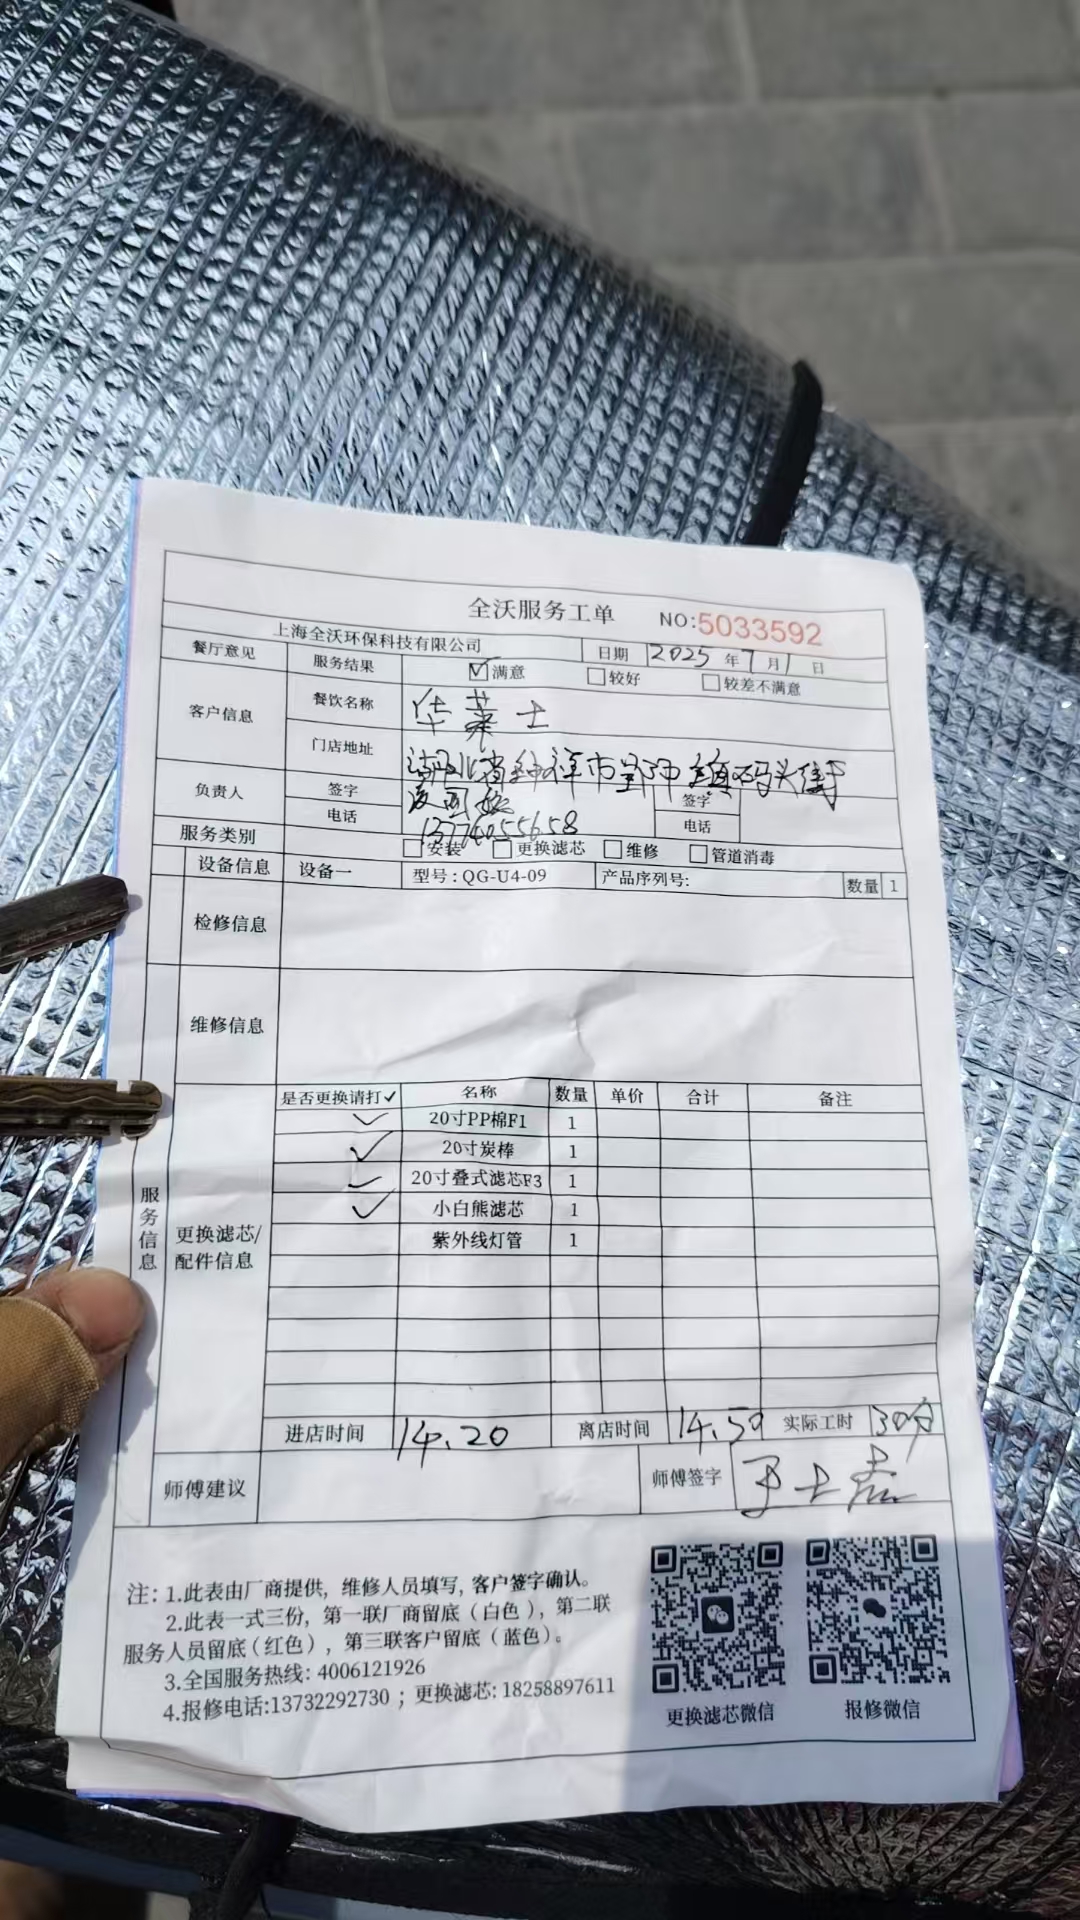 全沃服务工单 NO:5033592
上海全沃环保科技有限公司 日期 2025 年 7 月 1 日
餐厅意见 服务结果 ☑满意 □较好 □较差不满意
客户信息 餐饮名称 华莱士
门店地址 湖北省钟祥市 镇码头街
负责人 签字 签字
电话 13774055658 电话
服务类别 □安装 □更换滤芯 □维修 □管道消毒
设备信息 设备一 型号:QG-U4-09 产品序列号: 数量 1
检修信息
维修信息
服务信息
更换滤芯/配件信息
是否更换请打✓ 名称 数量 单价 合计 备注
✓ 20寸PP棉F1 1
✓ 20寸炭棒 1
✓ 20寸叠式滤芯F3 1
✓ 小白熊滤芯 1
紫外线灯管 1
进店时间 14.20 离店时间 14.50 实际工时 30分
师傅建议 师傅签字
注: 1.此表由厂商提供, 维修人员填写, 客户签字确认。
2.此表一式三份, 第一联厂商留底(白色), 第二联
服务人员留底(红色), 第三联客户留底(蓝色)。
3.全国服务热线: 4006121926
4.报修电话:13732292730 ; 更换滤芯: 18258897611
更换滤芯微信 报修微信